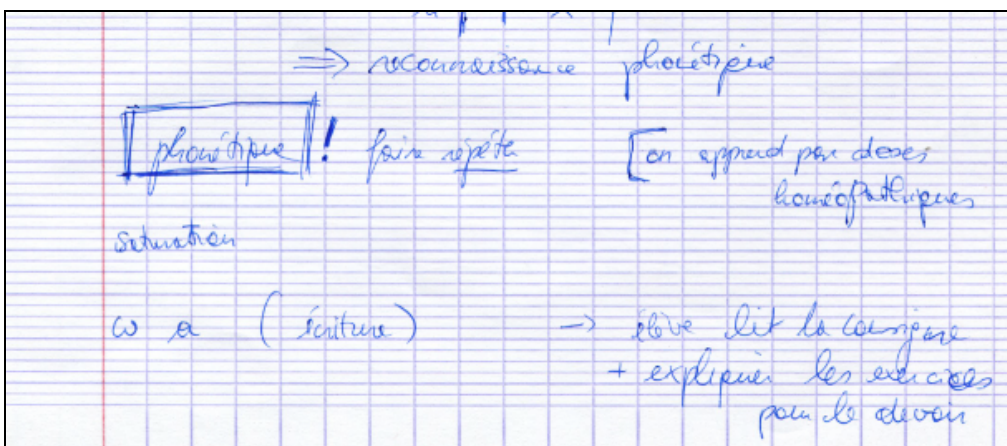 ⇒ reconnaissance phonétique
phonétique ! faire répéter [on apprend par doses
homéopathiques
saturation
w a (écriture) → élève lit la consigne
+ expliquer les exercices
pour le devoir